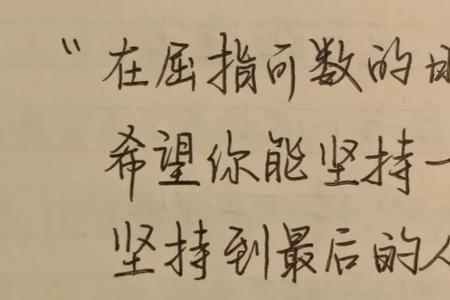 “在屈指可数的
希望你能坚持一
坚持到最后的人